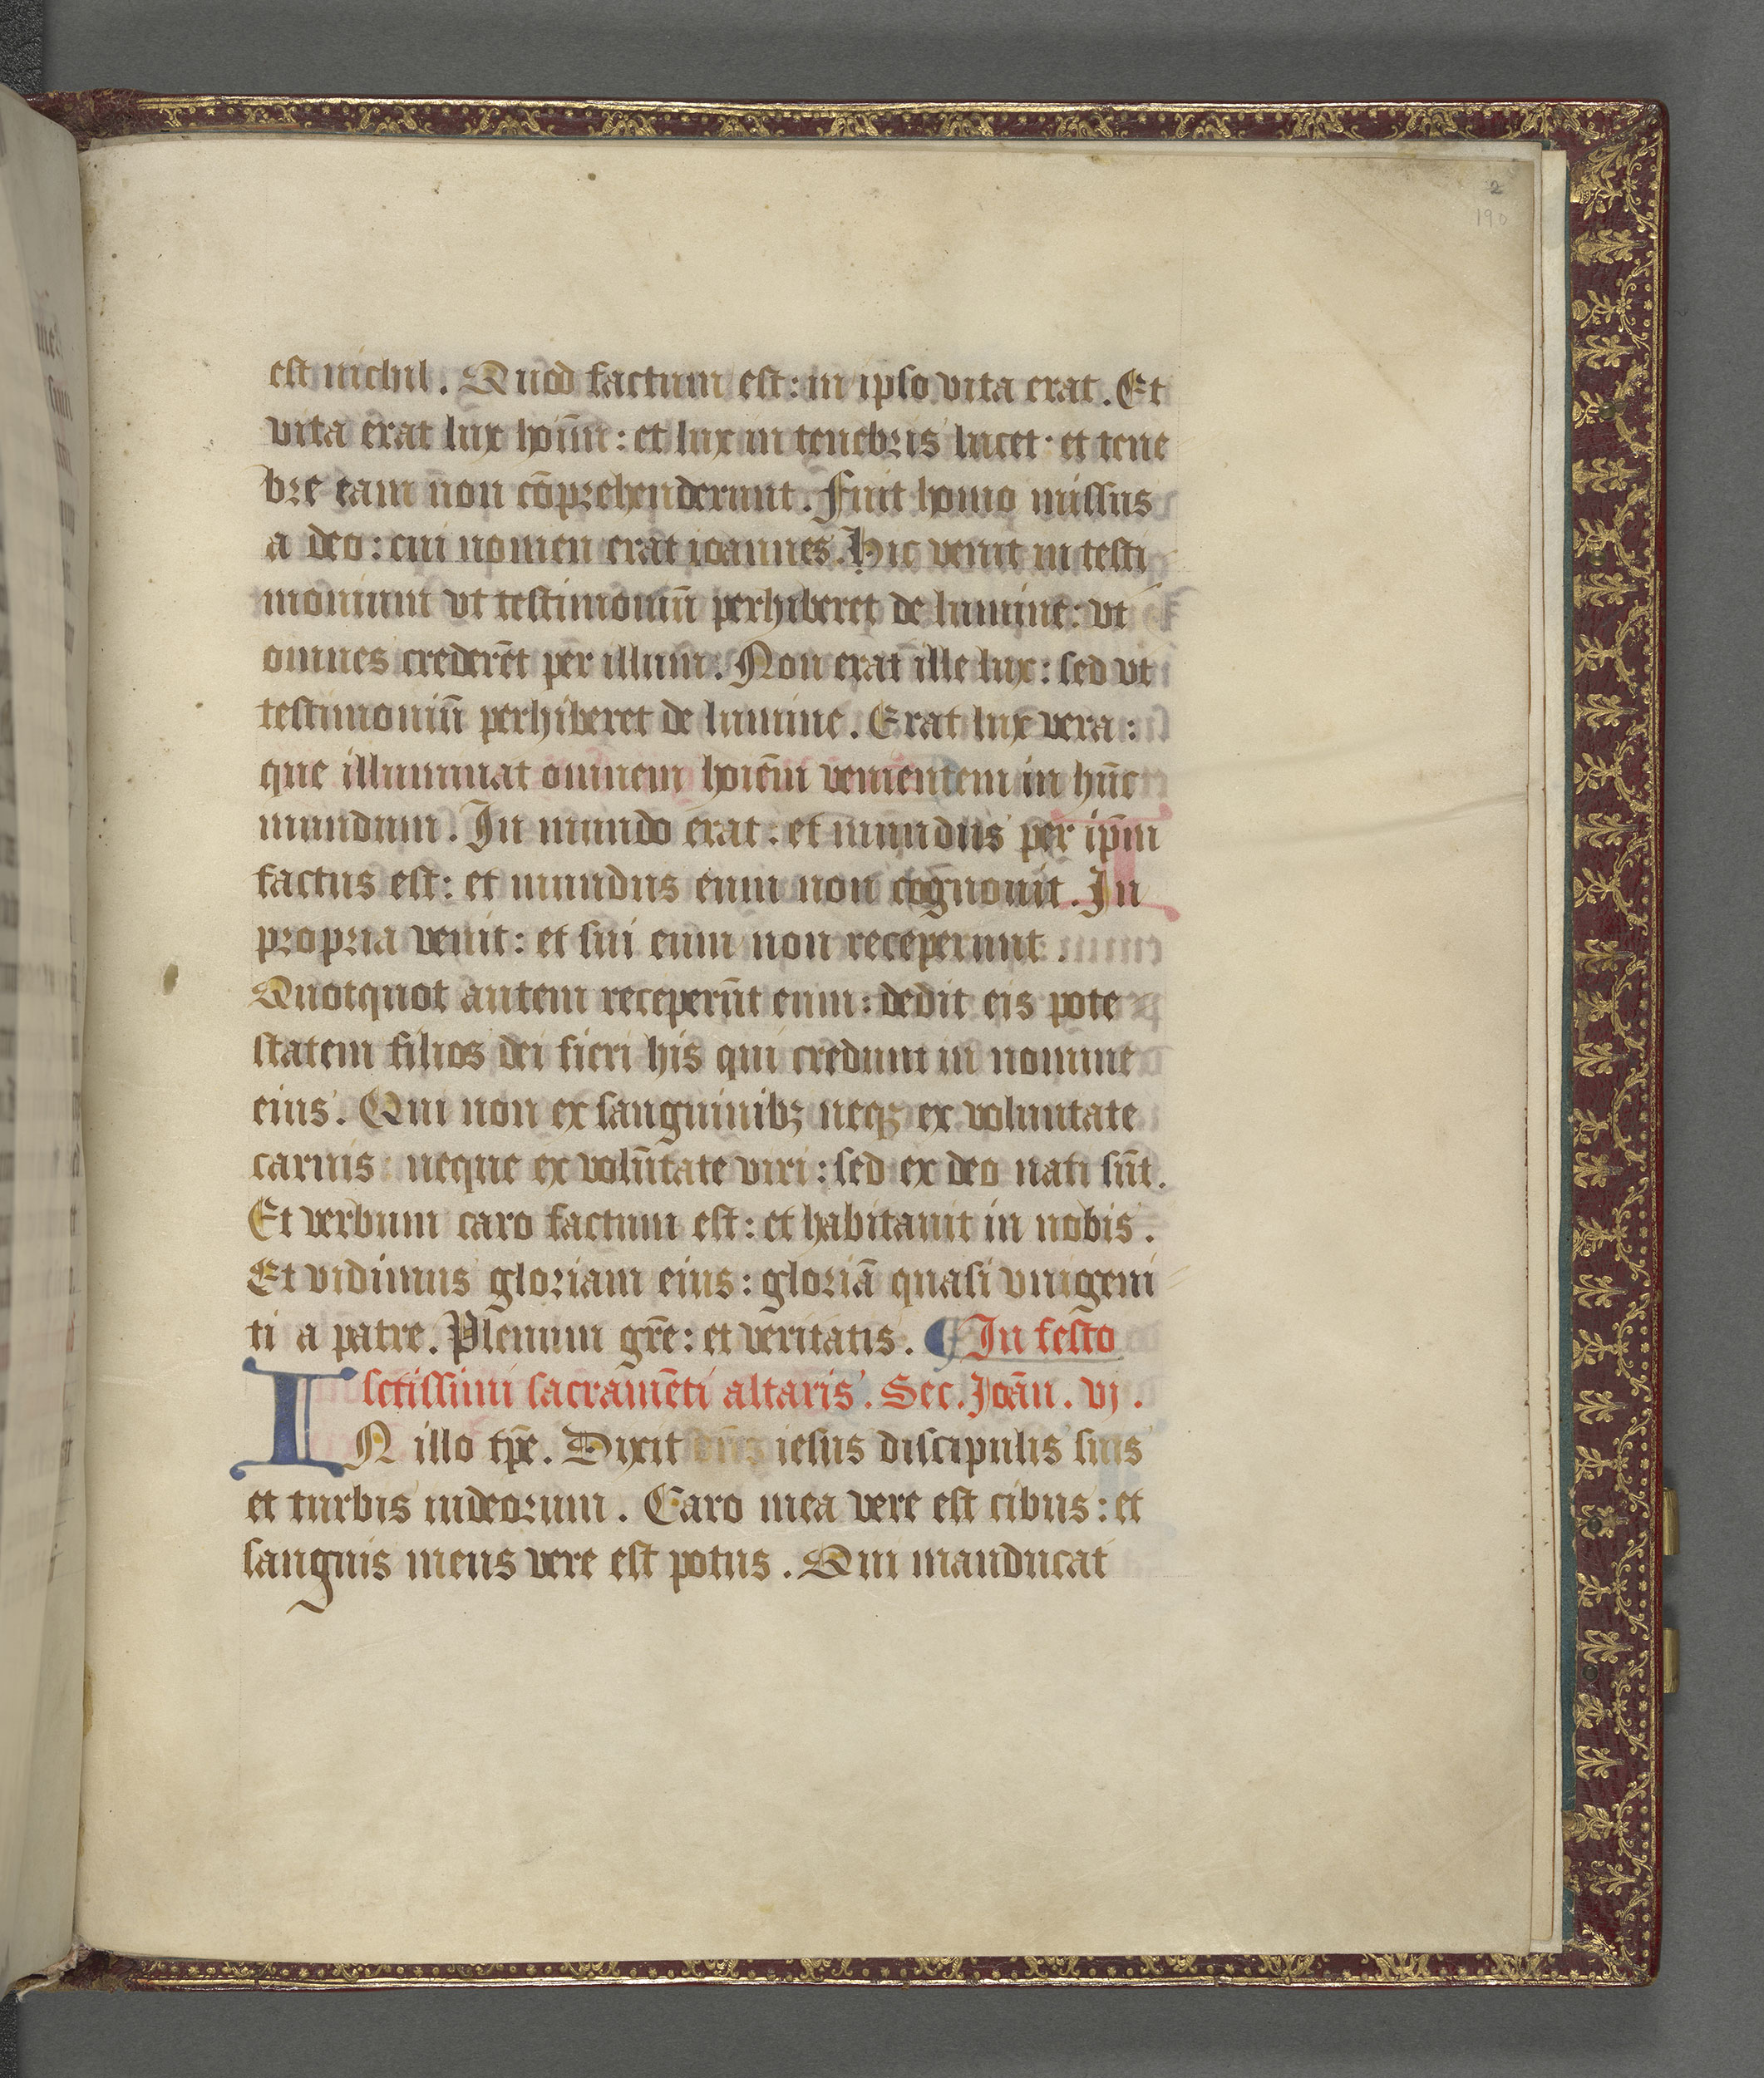 2
190
est nichil. Quod factum est: in ipso vita erat. Et
vita erat lux hoīm: et lux in tenebris lucet: et tene
bre eam non cōprehenderunt. Fuit homo missus
a deo: cui nomen erat ioannes. Hic venit in testi
monium vt testimoniū perhiberet de lumine: vt
omnes crederēt per illum. Non erat ille lux: sed vt
testimoniū perhiberet de lumine. Erat lux vera:
que illuminat omnem hoiēm venientem in hūc
mundum. In mundo erat: et mundus per ip̄m
factus est: et mundus eum non cognouit. In
propria venit: et sui eum non receperunt.
Quotquot autem receperūt eum: dedit eis pote
statem filios dei fieri his qui credunt in nomine
eius. Qui non ex sanguinibꝫ neqꝫ ex voluntate
carnis: neque ex volūtate viri: sed ex deo nati sūt.
Et verbum caro factum est: et habitauit in nobis.
Et vidimus gloriam eius: gloriā quasi vnigeni
ti a patre. Plenum gr̄e: et veritatis. ¶ In festo
sctissimi sacramēti altaris. Sec. Joān. vj.
IN illo tp̄e. Dixit dn̄s iesus discipulis suis
et turbis iudeorum. Caro mea vere est cibus: et
sanguis meus vere est potus. Qui manducat